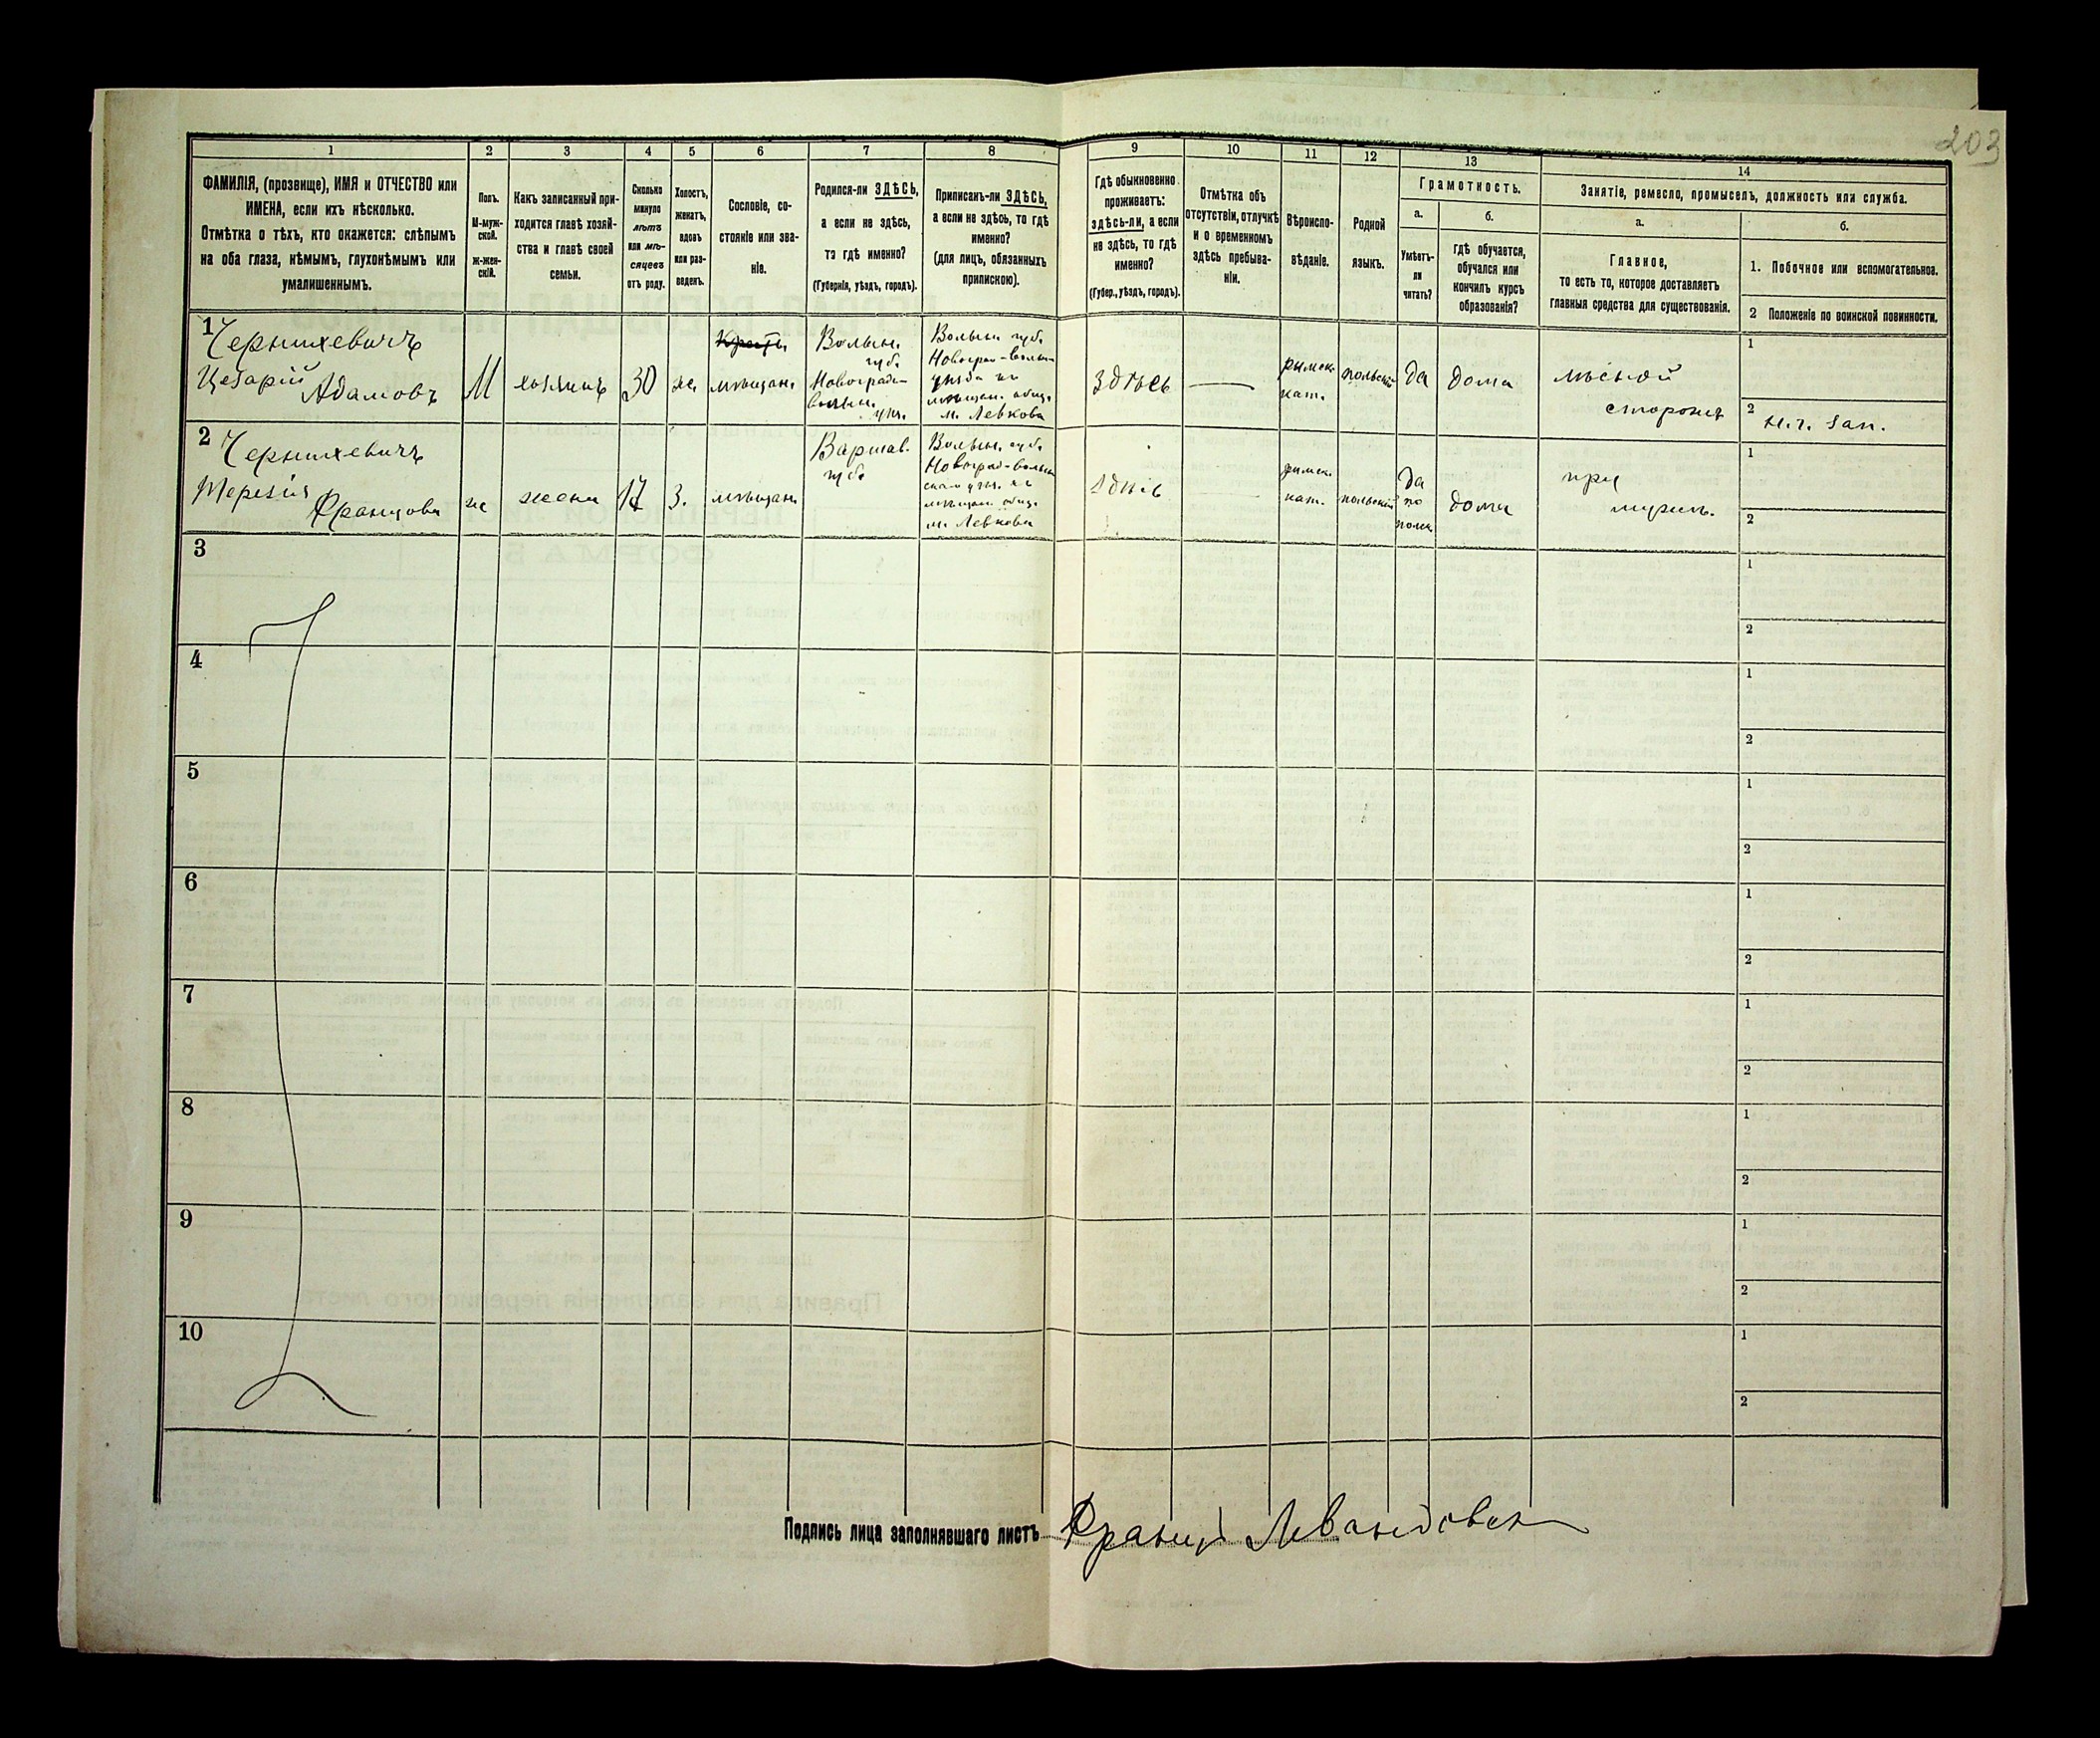 203
1 2 3 4 5 6 7 8 9 10 11 12 13 14
ФАМИЛІЯ, (прозвище), ИМЯ и ОТЧЕСТВО или
ИМЕНА, если ихъ нѣсколько.
Отмѣтка о тѣхъ, кто окажется: слѣпымъ
на оба глаза, нѣмымъ, глухонѣмымъ или
умалишеннымъ.
Полъ.
М-муж-
ской.
ж-жен-
скій.
Какъ записанный при-
ходится главѣ хозяй-
ства и главѣ своей
семьи.
Сколько
минуло
лѣтъ
или мѣ-
сяцевъ
отъ роду.
Холостъ,
женатъ,
вдовъ
или раз-
веденъ.
Сословіе, со-
стояніе или зва-
ніе.
Родился-ли ЗДѢСЬ,
а если не здѣсь,
то гдѣ именно?
(Губернія, уѣздъ, городъ).
Приписанъ-ли ЗДѢСЬ,
а если не здѣсь, то гдѣ
именно?
(для лицъ, обязанныхъ
припискою).
Гдѣ обыкновенно
проживаетъ:
здѣсь-ли, а если
не здѣсь, то гдѣ
именно?
(Губер., уѣздъ, городъ).
Отмѣтка объ
отсутствіи, отлучкѣ
и о временномъ
здѣсь пребыва-
ніи.
Вѣроиспо-
вѣданіе.
Родной
языкъ.
Грамотность.
а.
Умѣетъ-
ли
читать?
б.
гдѣ обучается,
обучался или
кончилъ курсъ
образованія?
Занятіе, ремесло, промыселъ, должность или служба.
а.
Главное,
то есть то, которое доставляетъ
главныя средства для существованія.
б.
1. Побочное или вспомогательное.
2 Положеніе по воинской повинности.
1
Чернихевичъ
Цезарій Адамовъ
М
хозяинъ
30
же
мѣщан.
Волын.
губ.
Новоград-
волын.
уѣз.
Волын. губ.
Новоград-волын
уѣзда къ
мѣщан. общ.
м. Левкова
здѣсь
римск.
кат.
польскій
да
дома
лѣсной
сторожъ
1
2
2
Чернихевичъ
Терезія
Францова
ж
жена
17
з.
мѣщан
Варшав.
губ.
Волын. губ.
Новоград-волын
скаго уѣз. къ
мѣщан. общ.
м. Левкова
здѣсь
римск.
кат.
польскій
да
по
польск
дома
при
мужѣ.
1
2
3
1
2
4
1
2
5
1
2
6
1
2
7
1
2
8
1
2
9
1
2
10
1
2
Подпись лица заполнявшаго листъ Францъ Левандовск